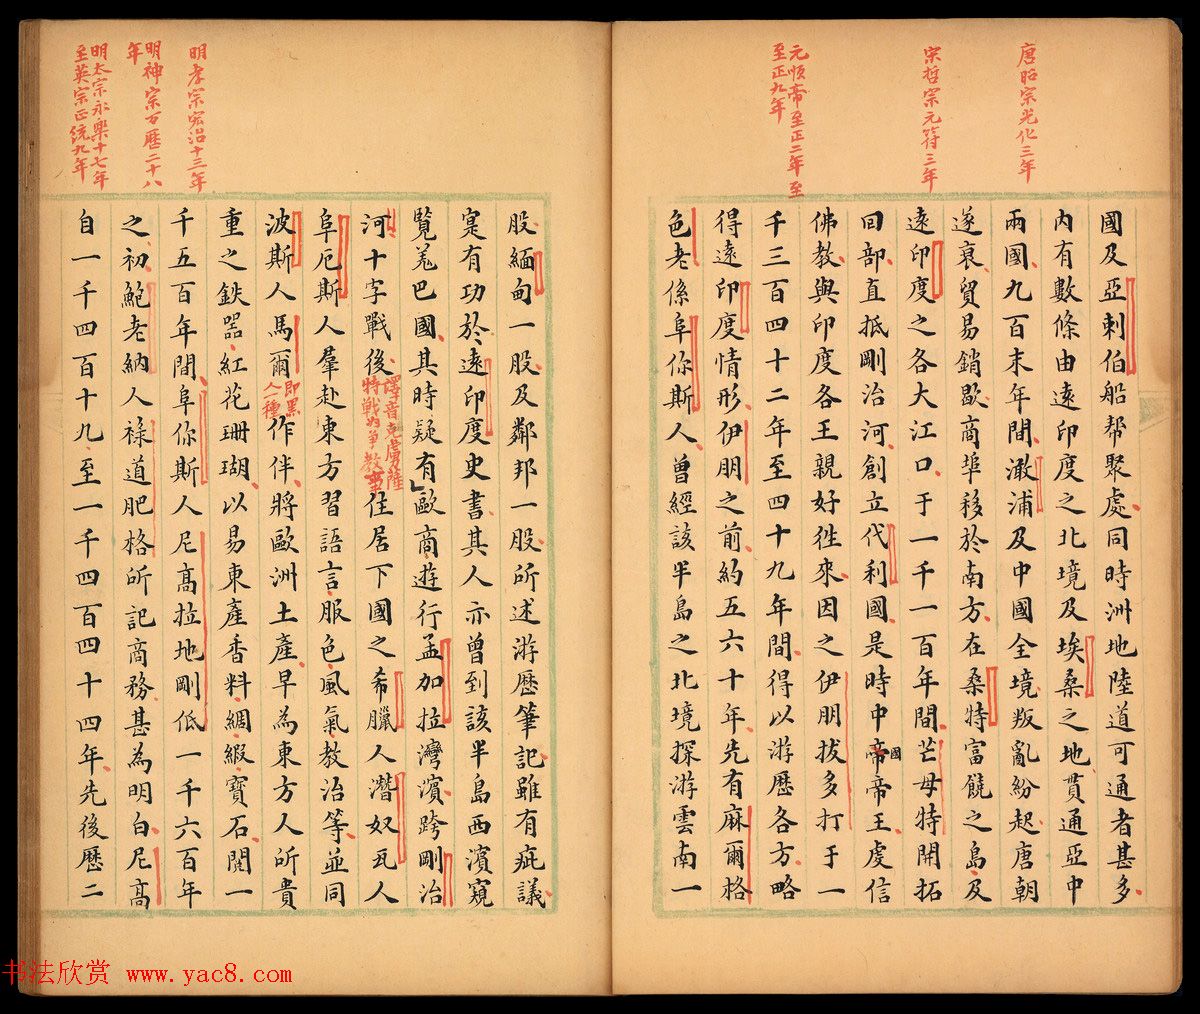 唐昭宗光化三年
宋哲宗元符三年
元順帝至正二年至
至正九年
國及亞剌伯船帮聚處同時洲地陸道可通者甚多
内有數條由遠印度之北境及埃桑之地貫通亞中
兩國九百末年間澉浦及中國全境叛亂紛起唐朝
遂衰貿易銷歇商埠移於南方在桑特富饒之島及
遠印度之各大江口于一千一百年間芒母特開拓
回部直抵剛治河創立代利國是時中帝帝王虔信
國
佛教與印度各王親好徃來因之伊朋拔多打于一
千三百四十二年至四十九年間得以游歷各方略
得遠印度情形伊朋之前約五六十年先有麻爾格
色老係阜你斯人曾經該半島之北境探游雲南一
明孝宗宏治十三年
明神宗万歷二十八
年
明太宗永樂十七年
至英宗正統九年
股緬甸一股及鄰邦一股所述游歷筆記雖有疵議
寔有功於遠印度史書其人亦曾到該半島西濱窺
覽羗巴國其時疑有歐商遊行孟加拉灣濱跨剛治
河十字戰後
譯音克虜陸
特戰为争教事
住居下國之希臘人潛奴瓦人
阜厄斯人羣赴東方習語言服色風氣教治等並同
波斯人馬爾
即黑
人一種
作伴將歐洲土產早為東方人所貴
重之鉄噐紅花珊瑚以易東產香料綢緞寶石閱一
千五百年間阜你斯人尼高拉地剛低一千六百年
之初鮑老納人祿道肥格所記商務甚為明白尼高
自一千四百十九至一千四百四十四年先後歷二
书法欣赏 www.yac8.com